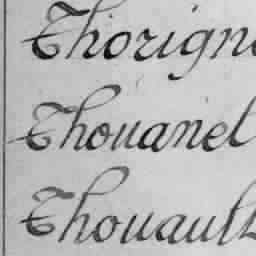 Thorign
Thouanel
Thouault